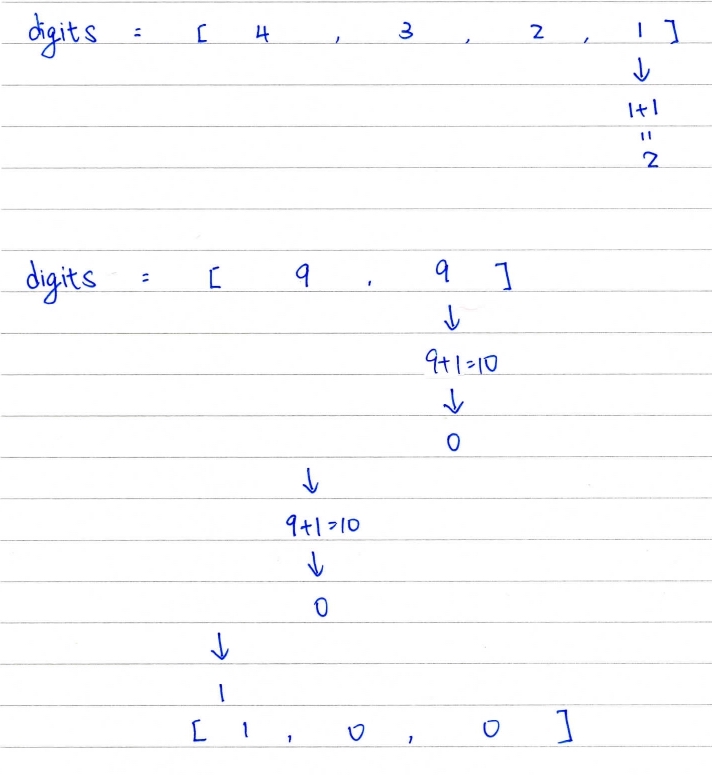 digits = [ 4 , 3 , 2 , 1 ]
↓
1+1
=
2
digits = [ 9 , 9 ]
↓
9+1=10
↓
0
↓
9+1=10
↓
0
↓
1
[ 1 , 0 , 0 ]